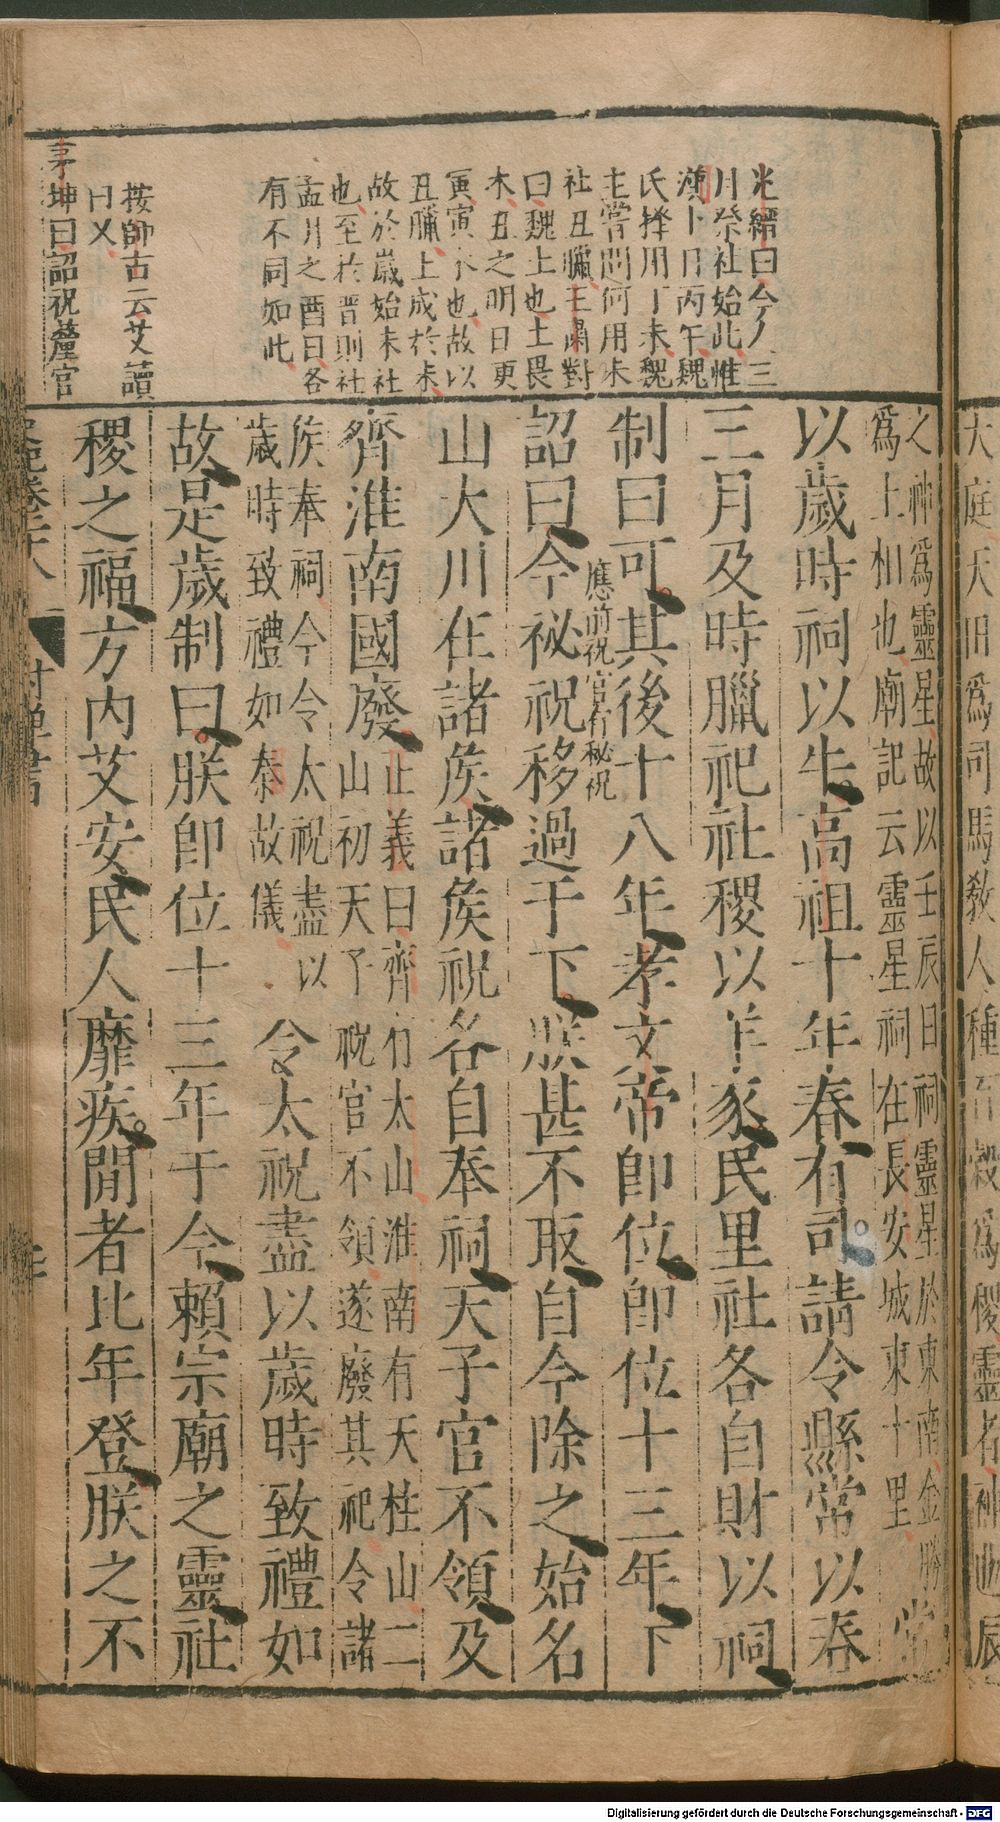 光縉曰今人三
月祭社始此惟
漢卜日丙午魏
氏擇用丁未魏
主嘗問何用未
社丑臘王肅對
曰魏土也土畏
木丑之明日更
寅寅木也故以
丑臘土成於未
故於歲始未社
也至於晉則社
孟月之酉日各
有不同如此
按師古云艾讀
曰乂
茅坤曰詔祝釐官
之神爲靈星故以壬辰日祠靈星於東南金勝
爲土相也廟記云靈星祠在長安城東十里 常
以歲時祠以牛高祖十年春有司請令縣常以春
三月及時臘祀社稷以羊豕民里社各自財以祠
制曰可其後十八年孝文帝卽位卽位十三年下
應前祝官有秘祝
詔曰今祕祝移過于下朕甚不取自今除之始名
山大川在諸侯諸侯祝各自奉祠天子官不領及
齊淮南國廢
正義曰齊有太山淮南有天柱山二
山初天子祝官不領遂廢其祀令諸
侯奉祠今令太祝盡以
歲時致禮如秦故儀
令太祝盡以歲時致禮如
故是歲制曰朕卽位十三年于今賴宗廟之靈社
稷之福方內艾安民人靡疾間者比年登朕之不
大庭天田爲司馬敎人種百穀爲稷靈者神也辰
Digitalisierung gefördert durch die Deutsche Forschungsgemeinschaft - DFG